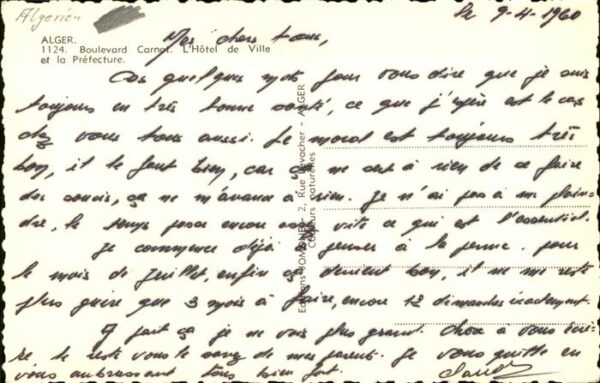 Algérien
Le 9-4-1960
ALGER.
1124. Boulevard Carnot. L'Hôtel de Ville
et la Préfecture.
Mes chers tous,
Ces quelques mots pour vous dire que je suis
toujours en très bonne santé, ce que j'espère est le cas
chez vous tous aussi. Le moral est toujours très
bon, il le faut bien, car ça ne sert à rien de se faire
des soucis, ça ne m'avance à rien. Je n'ai pas à me plain-
dre, le temps passe encore vite ce qui est l'essentiel.
Je commence déjà à penser à la perme. pour
le mois de Juillet, enfin ça devient bon, il ne me reste
plus guère que 3 mois à faire, encore 12 dimanches exactement.
A part ça je ne vois plus grand chose à vous écri-
re, le reste vous le savez de mes parents. Je vous quitte en
vous embrassant tous bien fort.
Editions JOMONE - 2, Rue Levacher - ALGER
Couleurs naturelles